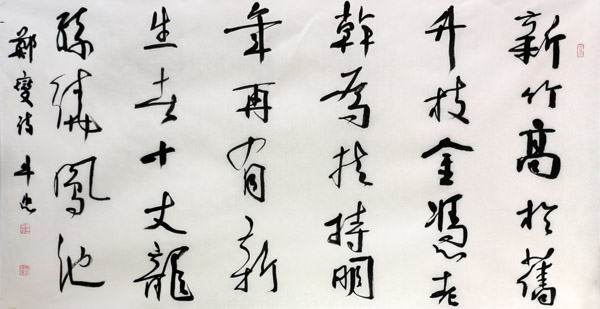 新竹高於舊
竹枝全憑老
幹為扶持明
年再有新
生十丈龍
孫繞鳳池
鄭燮詩